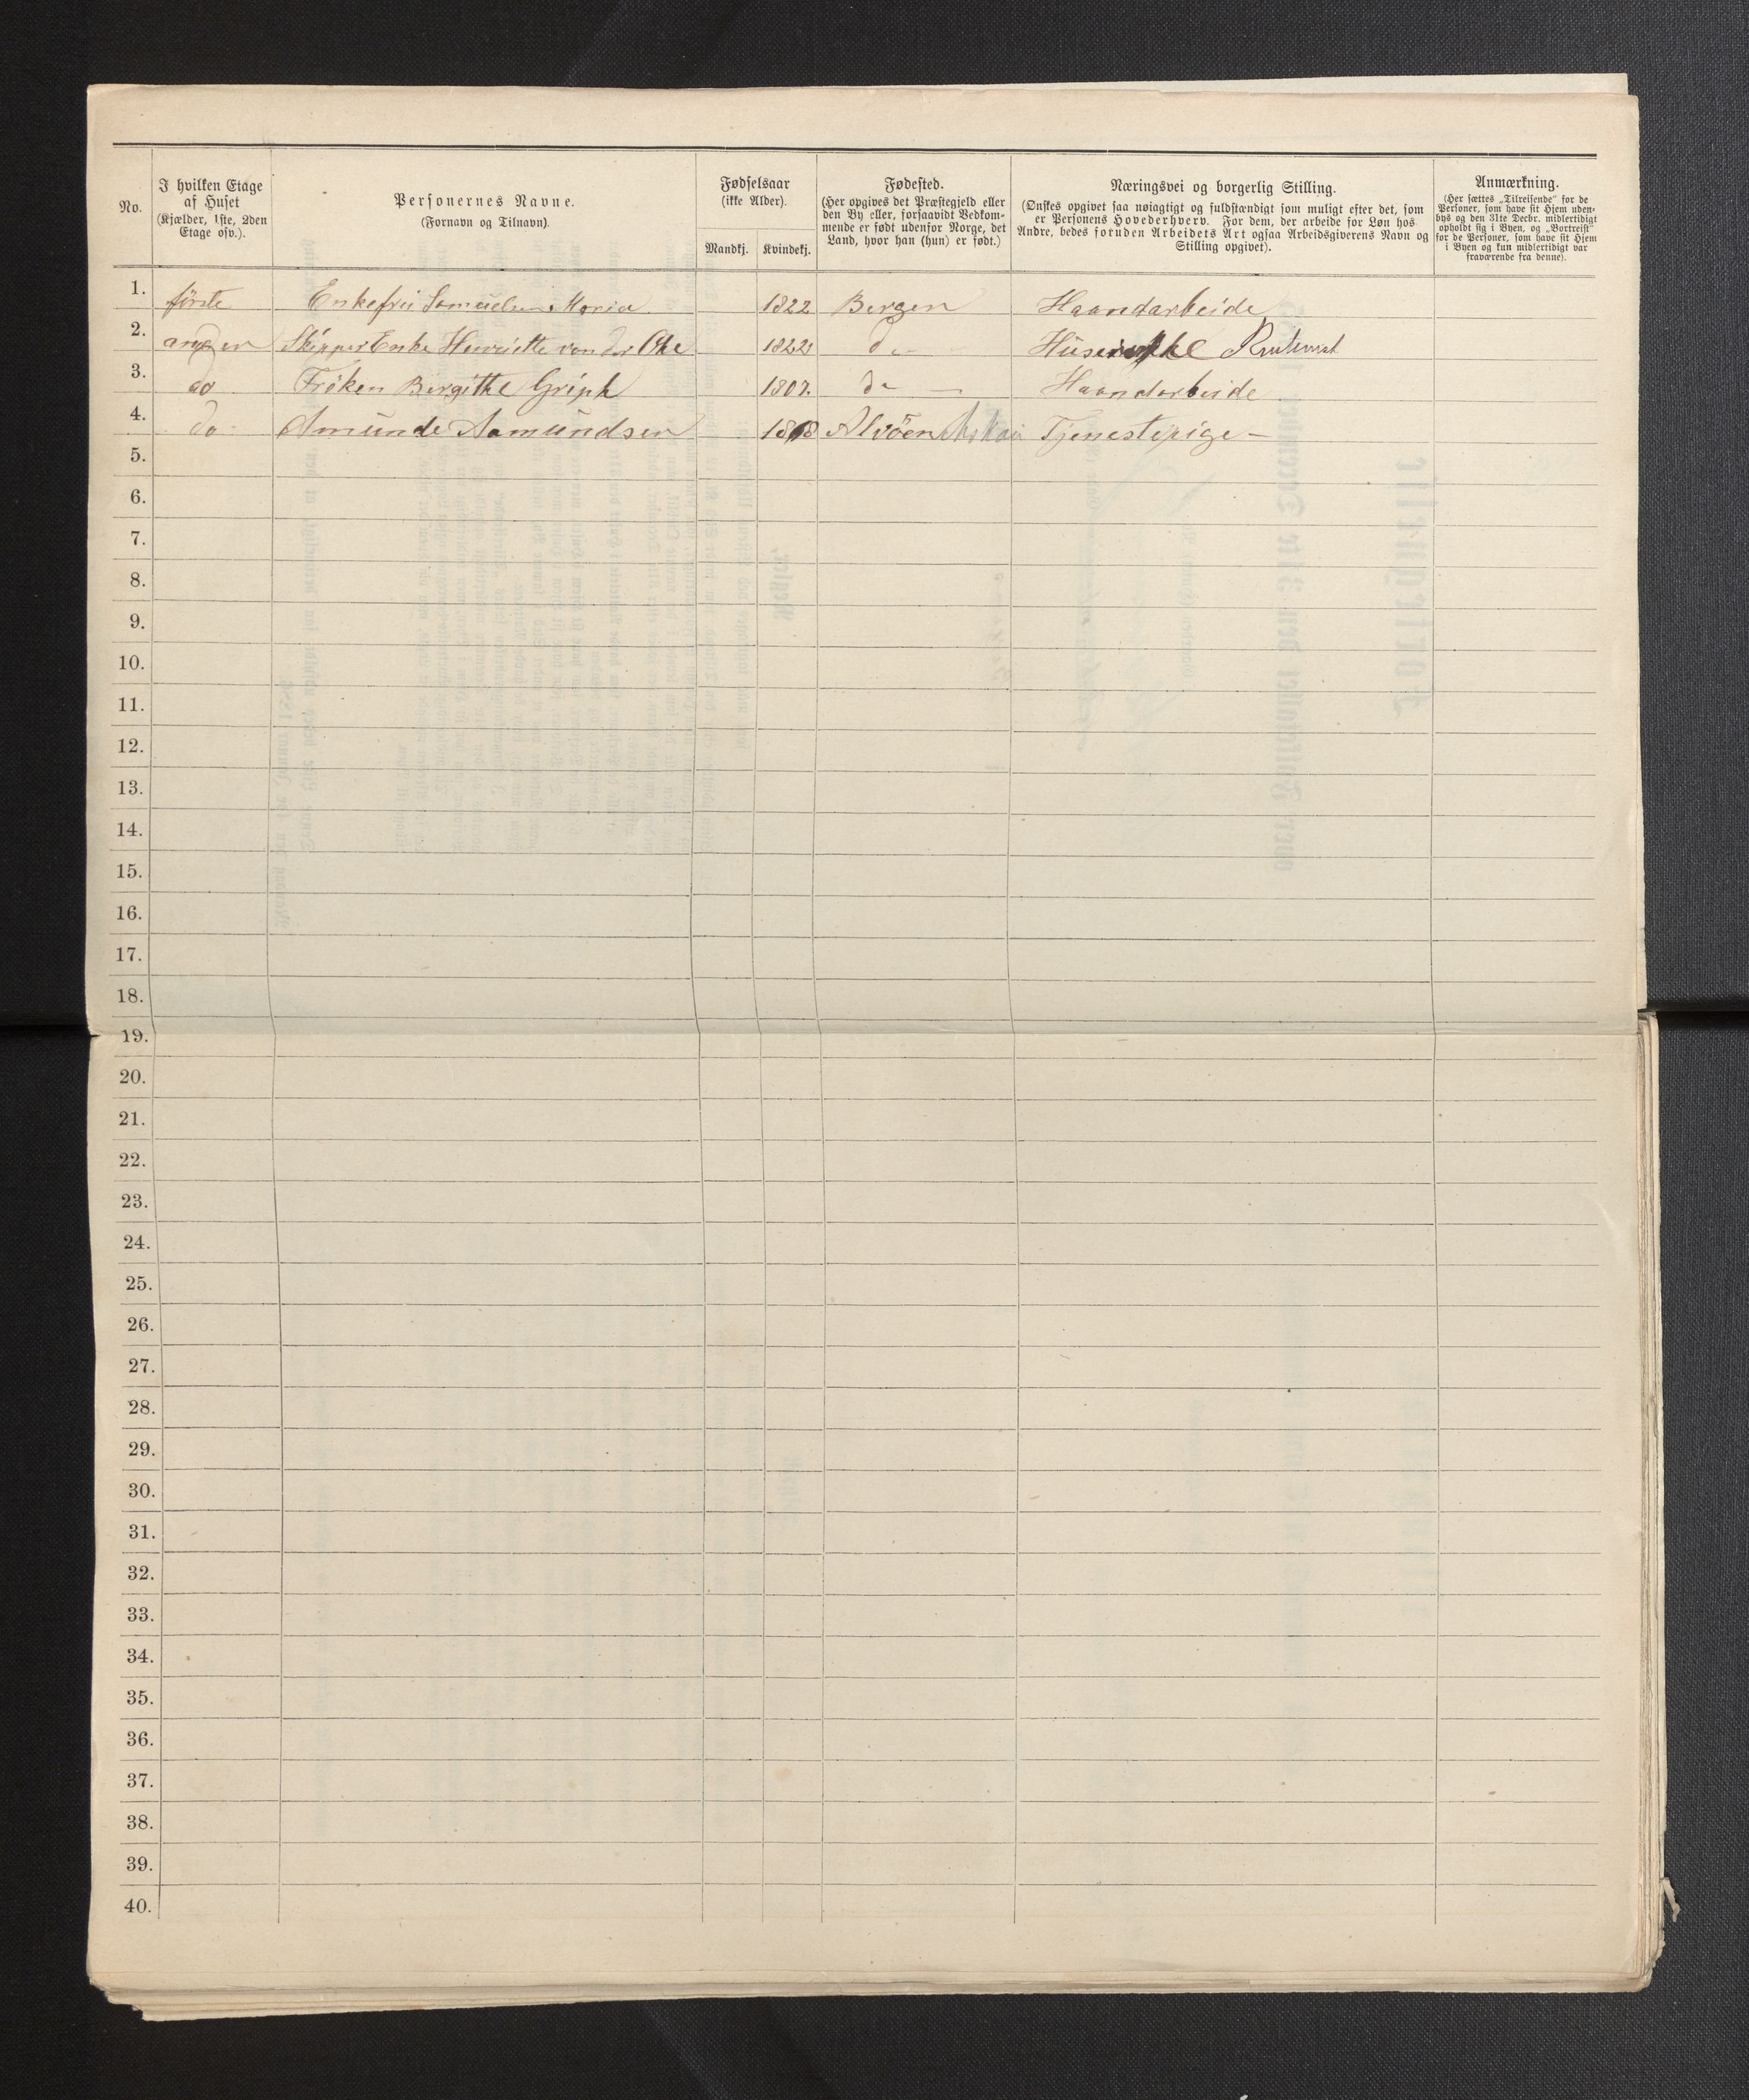 No.
I hvilken Etage
af Huset
(Kjælder, 1ste, 2den
Etage osv.).
Personernes Navne.
(Fornavn og Tilnavn).
Fødselsaar
(ikke Alder).
Mandkj. Kvindekj.
Fødested.
(Her opgives det Præstegjeld eller
den By eller, forsaavidt Vedkom-
mende er født udenfor Norge, det
Land, hvor han (hun) er født.)
Næringsvei og borgerlig Stilling.
(Ønskes opgivet saa nøiagtigt og fuldstændigt som muligt efter det, som
er Personens Hovederhverv. For dem, der arbeide for Løn hos
Andre, bedes foruden Arbeidets Art ogsaa Arbeidsgiverens Navn og
Stilling opgivet).
Anmærkning.
(Her sættes „Tilreisende“ for de
Personer, som have sit Hjem uden-
bys og den 31te Decbr. midlertidigt
opholdt sig i Byen, og „Bortreist“
for de Personer, som have sit Hjem
i Byen og kun midlertidigt var
fraværende fra denne).
1. første Enkefru Samuelsen Maria 1822 Bergen Haandarbeide
2. anden Skipper Enke Henriette von der Ohe 1822 do
3. do Frøken Birgithe Griph 1807. do — Haandarbeide
4. do Amunde Aamundsen Alvöen Askøi Tjenestepige —
5.
6.
7.
8.
9.
10.
11.
12.
13.
14.
15.
16.
17.
18.
19.
20.
21.
22.
23.
24.
25.
26.
27.
28.
29.
30.
31.
32.
33.
34.
35.
36.
37.
38.
39.
40.